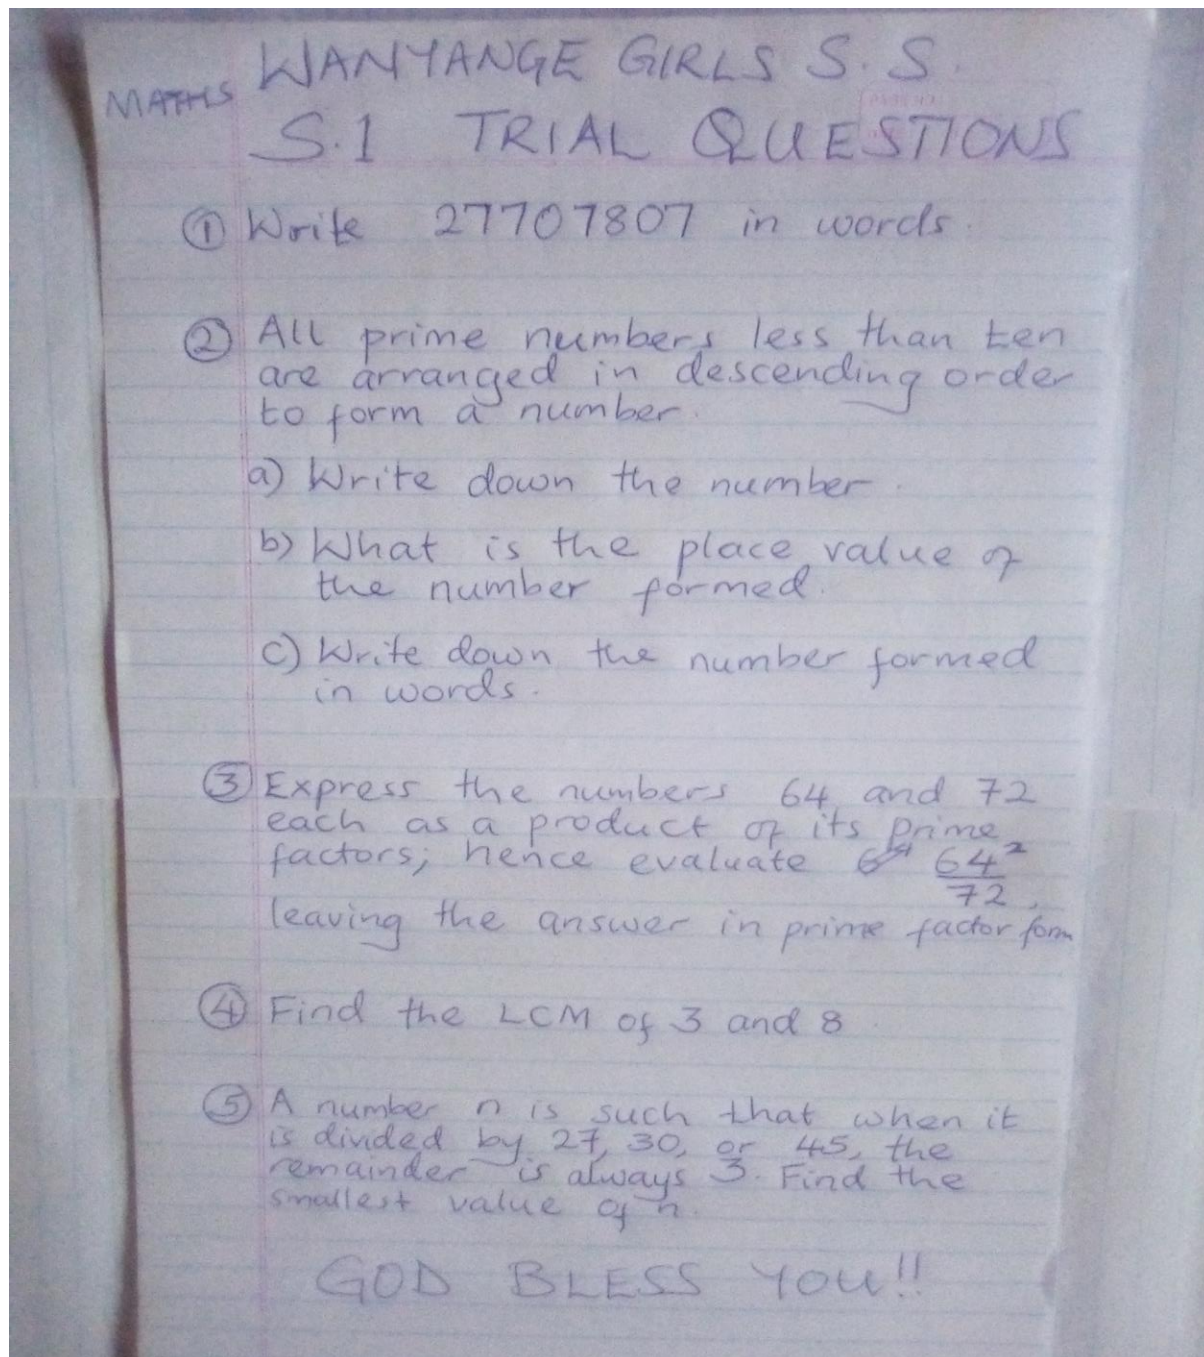 WANYANGE GIRLS S.S.
MATHS
S.1 TRIAL QUESTIONS
① Write 27707807 in words.
② All prime numbers less than ten
are arranged in descending order
to form a number.
a) Write down the number.
b) What is the place value of
the number formed.
c) Write down the number formed
in words.
③ Express the numbers 64 and 72
each as a product of its prime
factors; hence evaluate 64²
72,
leaving the answer in prime factor form
④ Find the LCM of 3 and 8.
⑤ A number n is such that when it
is divided by 27, 30, or 45, the
remainder is always 3. Find the
smallest value of n.
GOD BLESS YOU!!